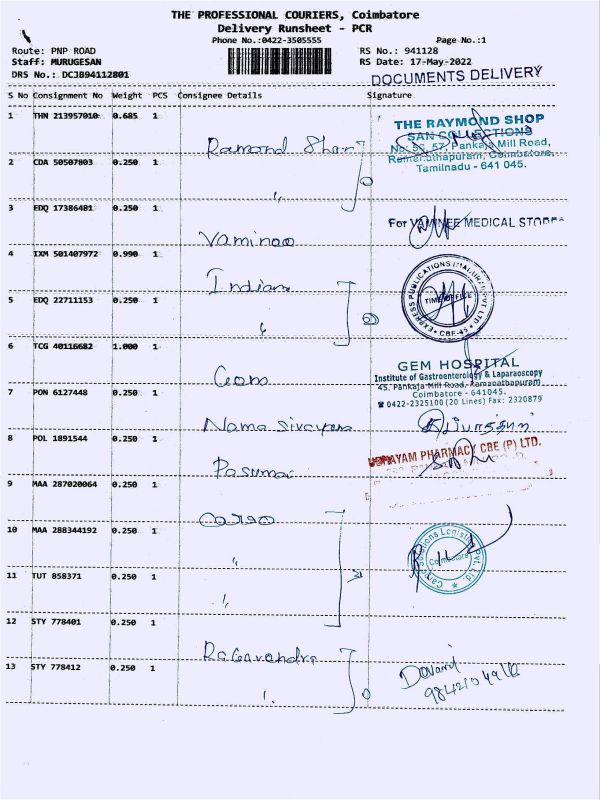 THE PROFESSIONAL COURIERS, Coimbatore
Delivery Runsheet - PCR
Phone No.:0422-3505555
Page No.:1
Route: PNP ROAD
RS No.: 941128
Staff: MURUGESAN
RS Date: 17-May-2022
DRS No.: DCJB94112801
DOCUMENTS DELIVERY
S No Consignment No Weight PCS Consignee Details Signature
1 THN 213957010 0.685 1
THE RAYMOND SHOP
SAN COLLECTIONS
No: 56, 57, Pankaja Mill Road,
Ramanathapuram, Coimbatore,
Tamilnadu - 641 045.
Ramond Shop
2 CDA 50507803 0.250 1
"
3 EDQ 17386481 0.250 1
For VAMINEE MEDICAL STORES
Vaminao
4 IXM 501407972 0.990 1
Indian
EXPRESS PUBLICATIONS (MADURAI) PVT LTD
TIME OFFICE
CBE-45
5 EDQ 22711153 0.250 1
"
6 TCG 40116682 1.000 1
GEM HOSPITAL
Institute of Gastroenterology & Laparaoscopy
45, Pankaja Mill Road, Ramanathapuram
Coimbatore - 641045.
☎ 0422-2325100 (20 Lines) Fax: 2320879
Gem
7 PON 6127448 0.250 1
Nama sivayam
8 POL 1891544 0.250 1
PHARMACY CBE (P) LTD.
Pasumai
9 MAA 287020064 0.250 1
Careo
10 MAA 288344192 0.250 1
"
Solutions Logistics Pvt. Ltd.
Coimbatore
11 TUT 858371 0.250 1
"
12 STY 778401 0.250 1
Ragavendra
13 STY 778412 0.250 1
"